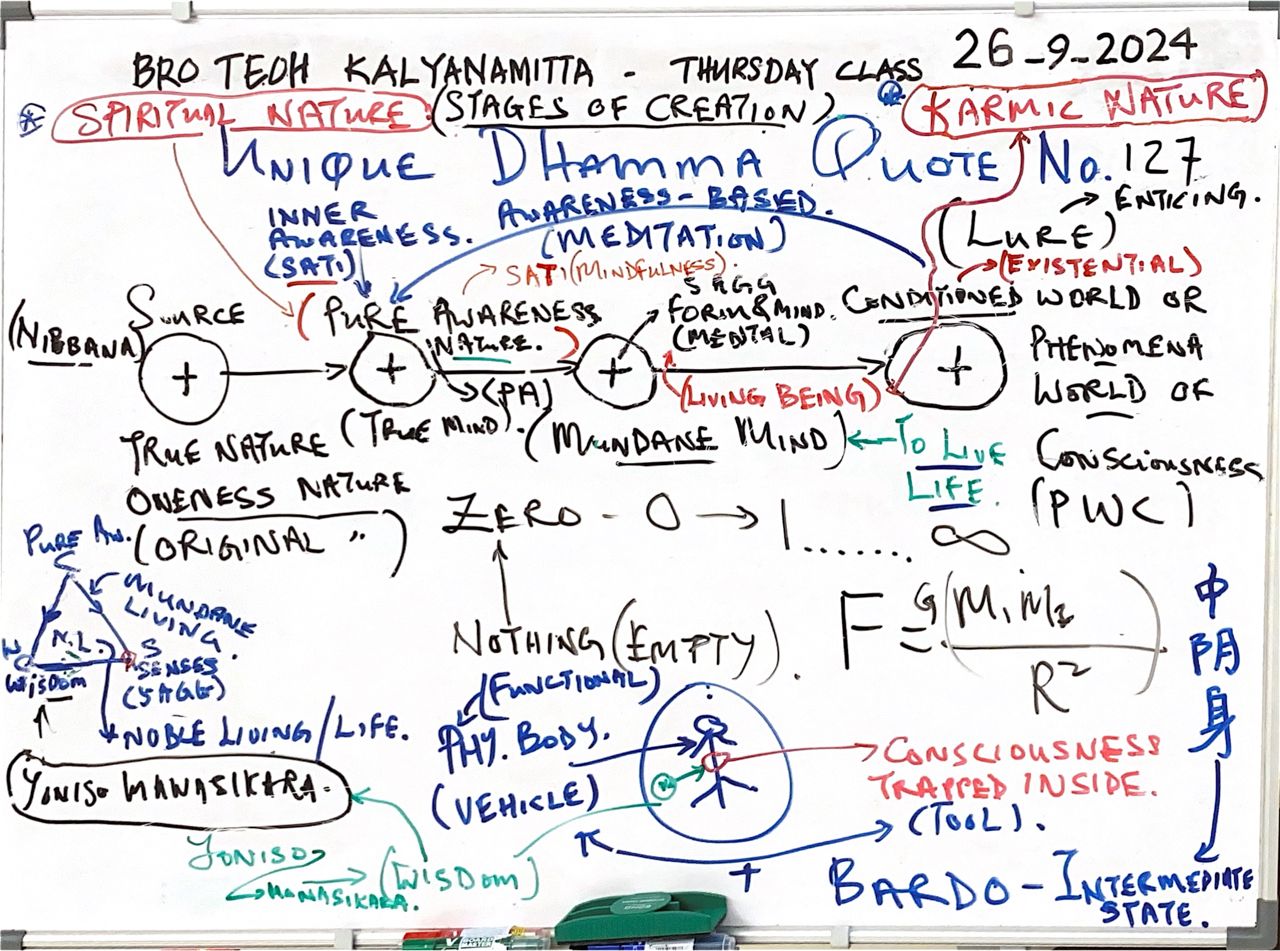 26-9-2024
BRO TEOH KALYANAMITTA - THURSDAY CLASS
SPIRITUAL NATURE (STAGES OF CREATION) KARMIC NATURE
UNIQUE DHAMMA QUOTE No. 127
INNER
AWARENESS.
(SATI)
AWARENESS-BASED.
(MEDITATION)
(LURE) → ENTICING.
SATI (MINDFULNESS).
(EXISTENTIAL)
(NIBBANA)
SOURCE
(PURE AWARENESS
NATURE.)
(PA)
5 AGG
FORM & MIND.
(MENTAL)
(LIVING BEING)
CONDITIONED WORLD OR
PHENOMENA
WORLD OF
CONSCIOUSNESS
(PWC)
TRUE NATURE
ONENESS NATURE
(ORIGINAL ")
(TRUE MIND).
(MUNDANE MIND) ← TO LIVE
LIFE.
ZERO - 0 → 1 ....... ∞
NOTHING (EMPTY).
F = G (M1 M2) / R²
PURE AW.
MUNDANE
LIVING.
N.L.
WISDOM
S
SENSES
(5 AGG)
NOBLE LIVING/LIFE.
YONISO MANASIKARA.
YONISO
MANASIKARA.
(WISDOM)
(FUNCTIONAL)
PHY. BODY.
(VEHICLE)
CONSCIOUSNESS
TRAPPED INSIDE.
(TOOL).
+
中阴身
BARDO - INTERMEDIATE
STATE.